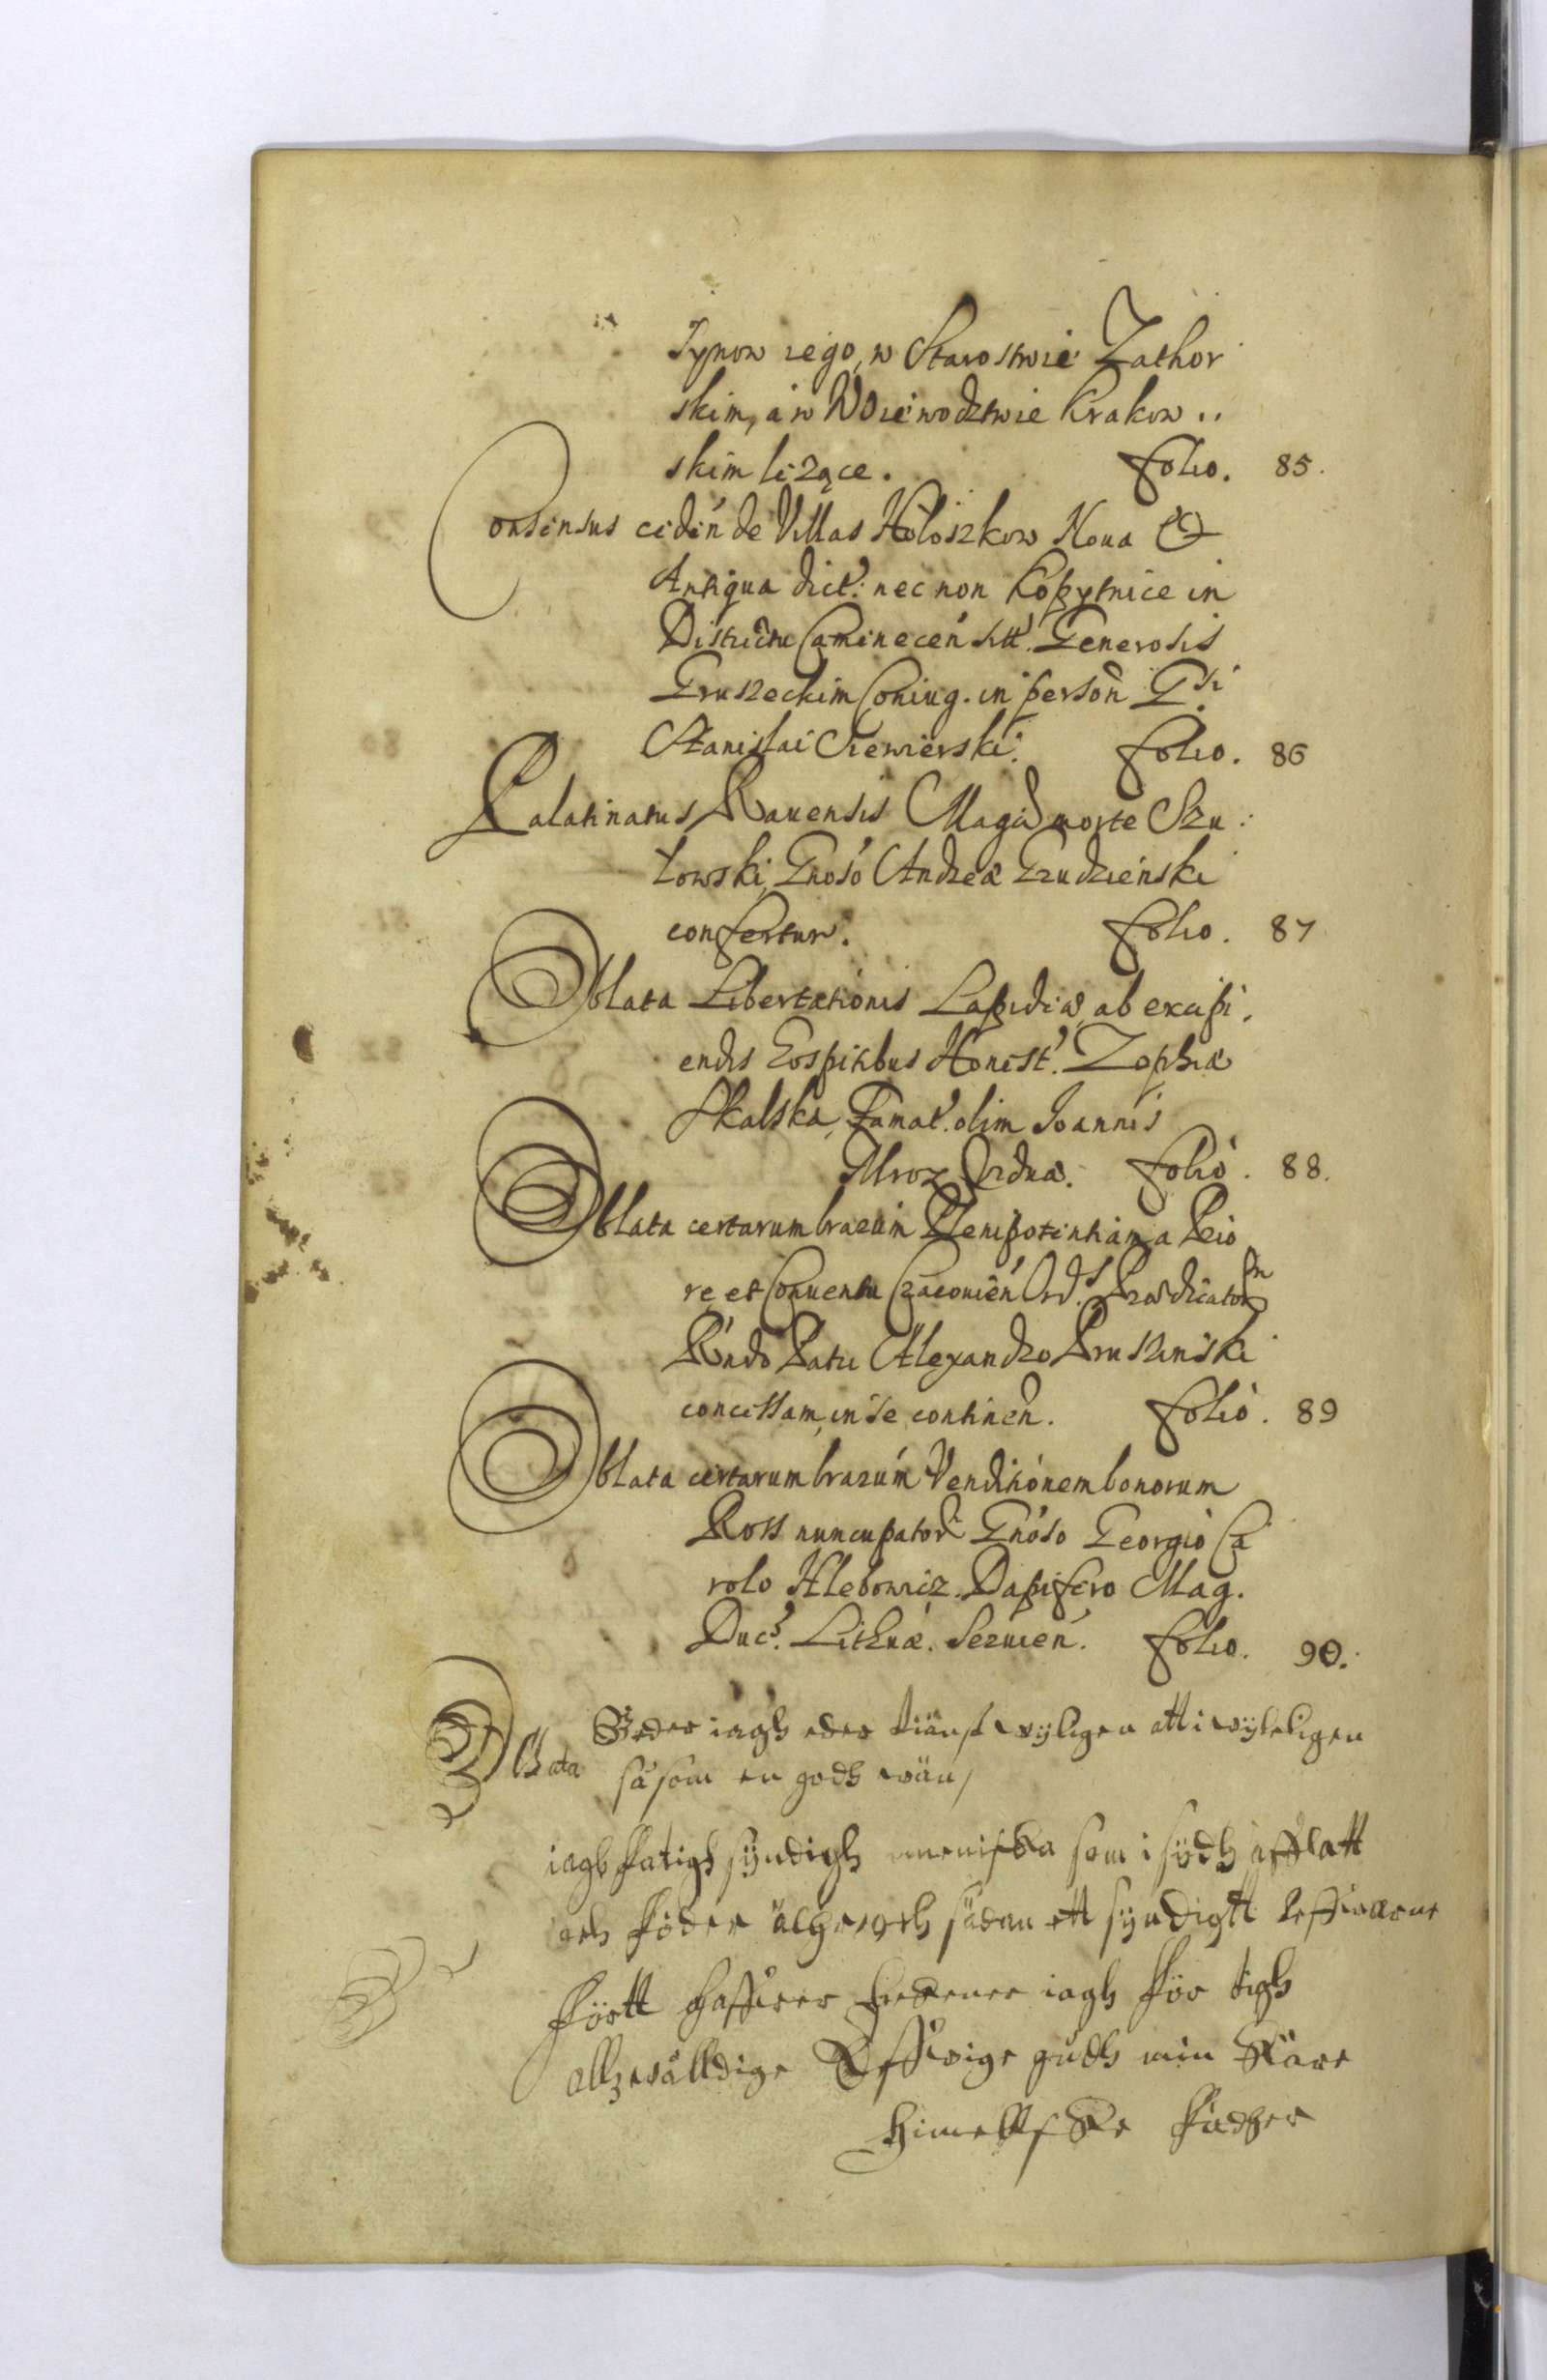 Synow iego, w Starostwie Zathor
skim, a w Woiewodztwie Krakow..
skim liżące. folio. 85.
Consensus cedén de Villas Hołoszkow Noua &
Antiqua dict: nec non Kopytnice in
Districtu Caminecén sitt. Generosis
Gruszeckim Coniug. in person Gsi
Stanislai Siewierski. folio. 86
Palatinatus Rauensis Magd morte Szu:
łowski, Gnoso Andreæ Grudzienski
confertur. folio. 87
Oblata Libertationis Lapideæ ab excipi.
endis Hospitibus Honest. Zophiæ
Skalska, Famat. olim Joannis
Mroz Vidua. folio. 88.
Oblata certarum lrarum Plenipotentiam a Prio
re et Conuentu Cracouien Ord. Prædicatorm
Rndo Patri Alexandro Pruszinski
concessam, in se continen. folio. 89
Oblata certarum lrarum Venditionem bonorum
Ross nuncupator Gnoso Georgio Ca
rolo Hlebowicz. Dapifero Mag.
Duc. Lithuæ. seruien. folio. 90.
Oblata Beder iagh eder tiänst wyligen att i wyleligen
såsom en godh wän,
iagh fatigh syndigh meniska som i södh afflatt
och föder älgh och sådan ett syndigtt leffwarne
förtt haffwer bekenner iagh för tigh
allzwålldige Effwige gudh min kiäre
himellske fadher